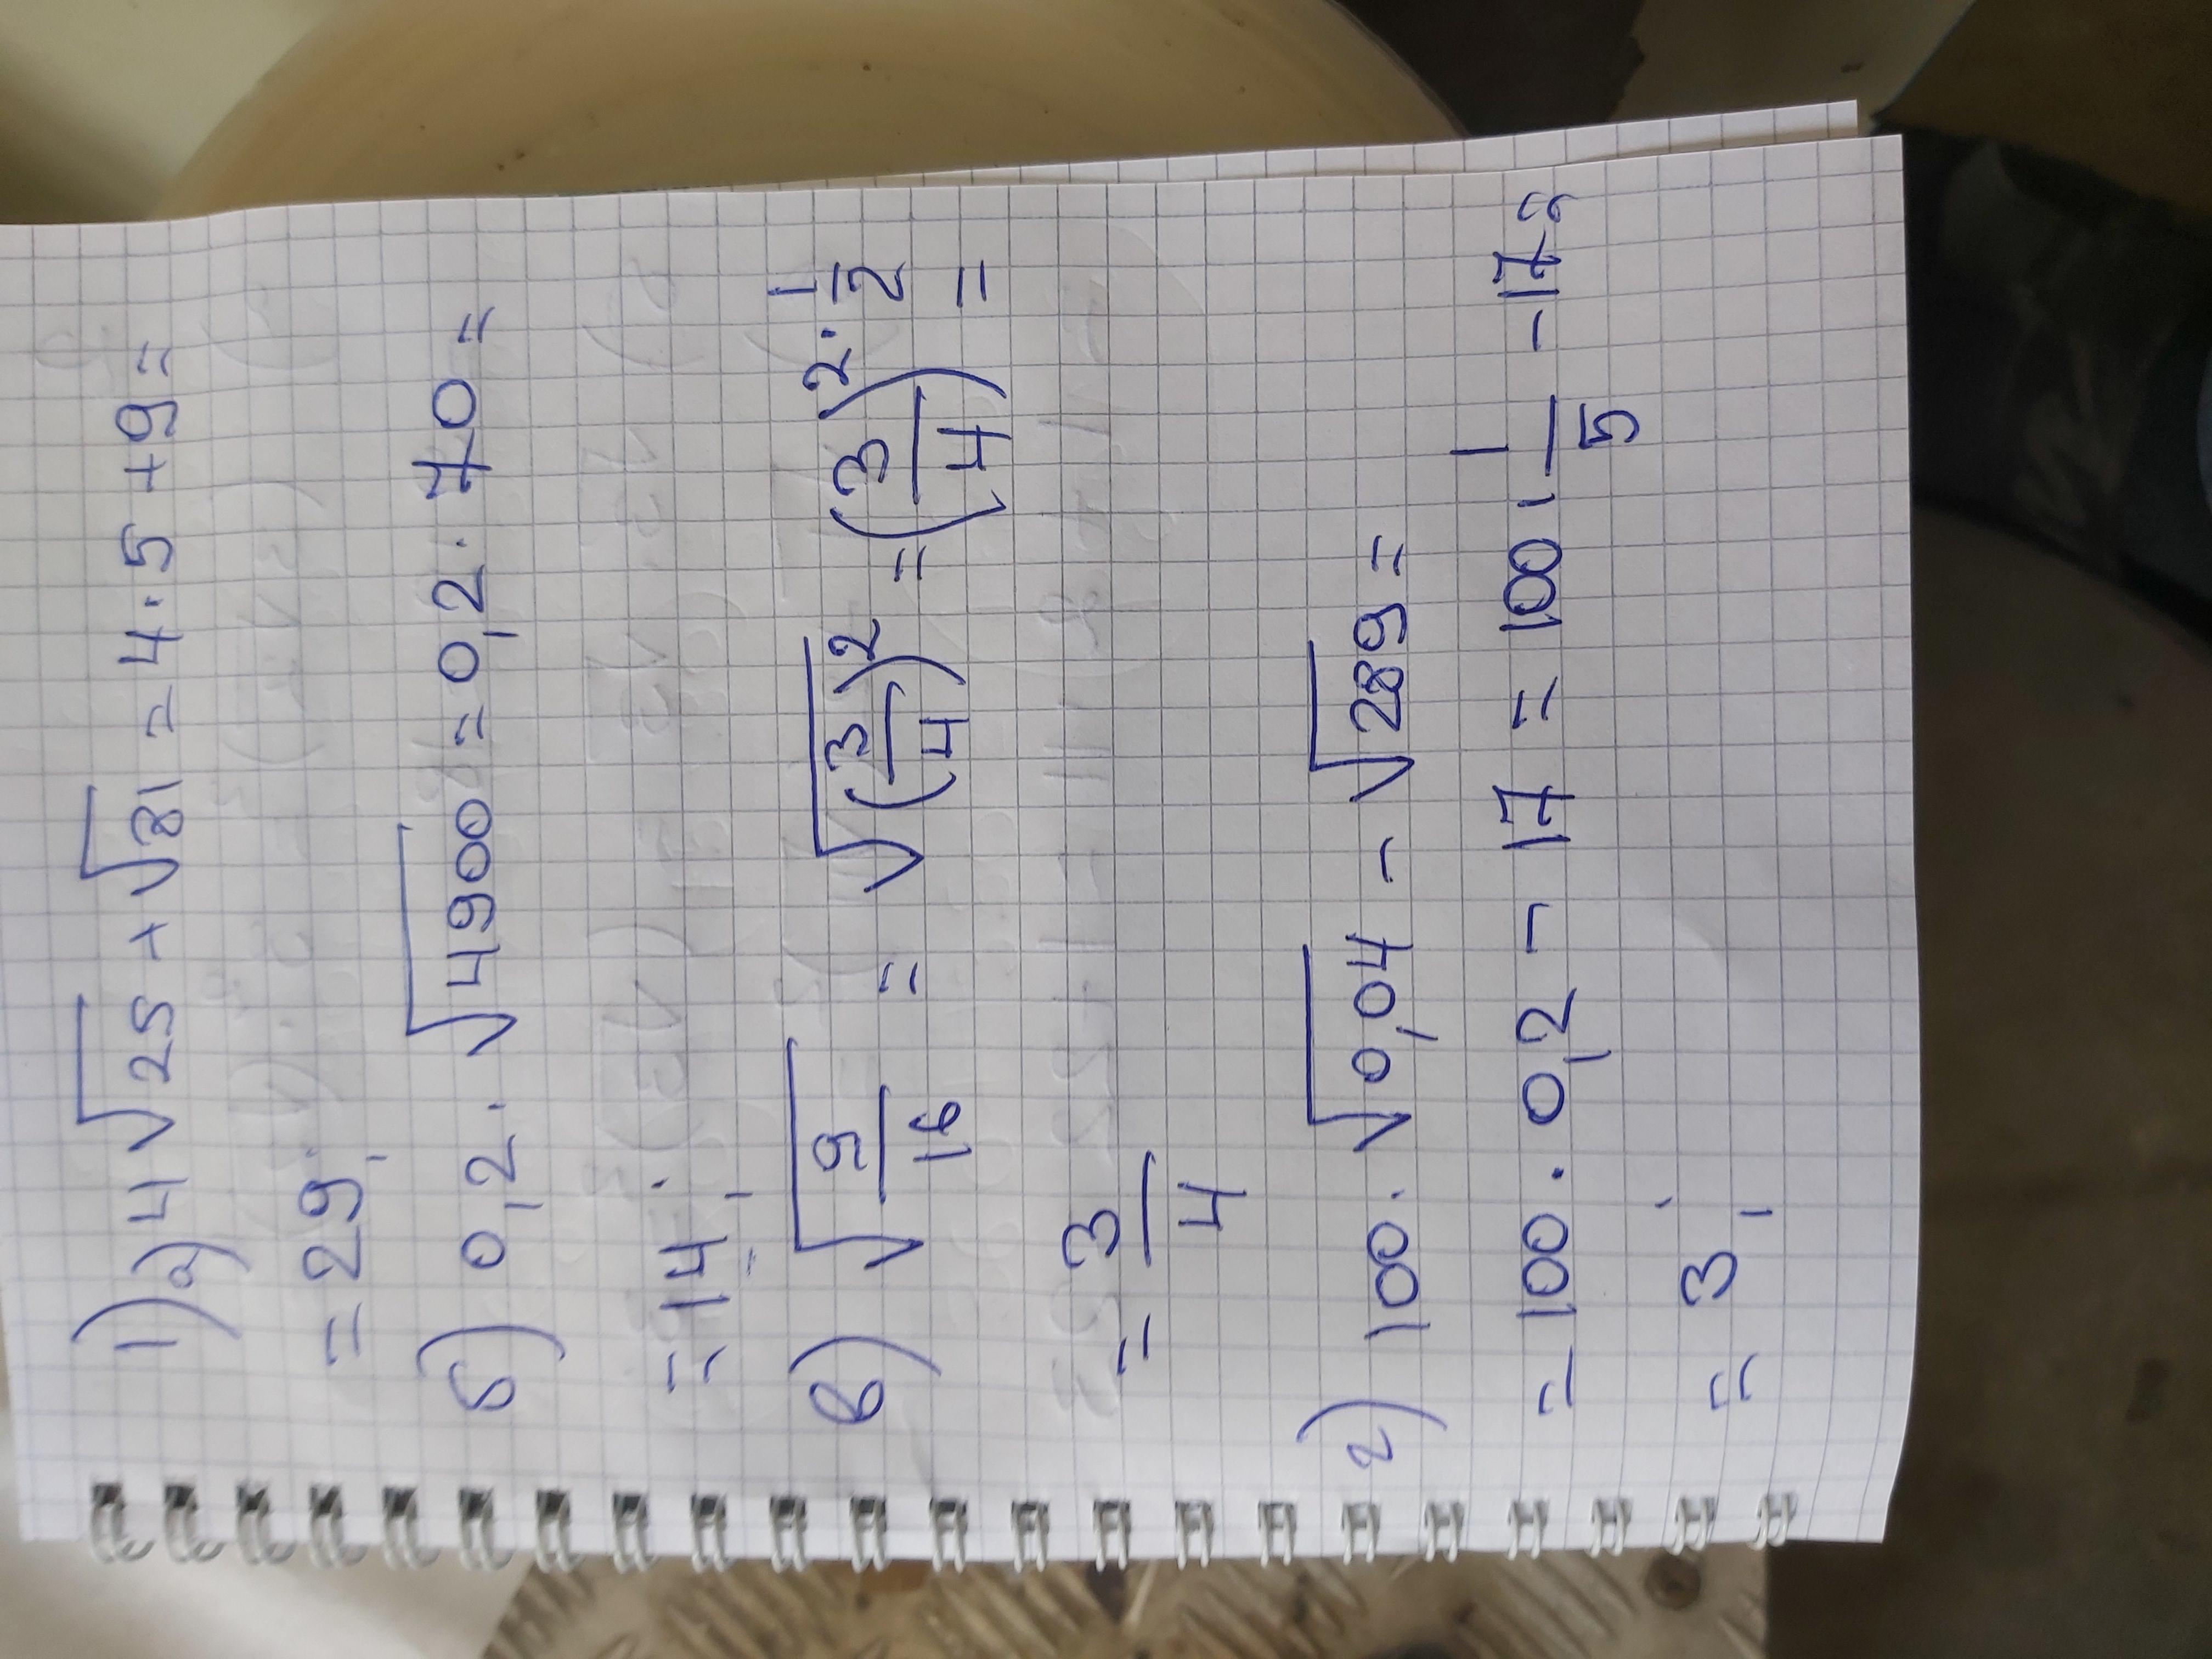 1) a) 4√25 + √81 = 4·5 + 9 =
= 29;
б) 0,2 · √4900 = 0,2 · 70 =
= 14;
в) √(9/16) = √((3/4)²) = (3/4)^(2·1/2) =
= 3/4
г) 100 · √0,04 - √289 =
= 100 · 0,2 - 17 = 100 · 1/5 - 17 =
= 3;